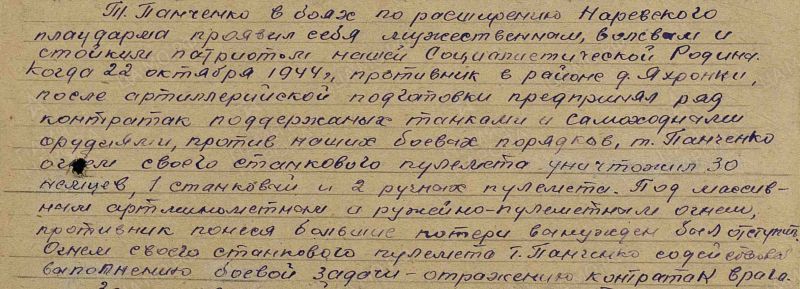 Т. Панченко в боях по расширению Наревского
плаударма проявил себя мужественным, волевым и
стойким патриотом нашей Социалистической Родины.
Когда 22 октября 1944г, противник в районе д. Яхронки,
после артиллерийской подготовки предпринял ряд
контратак поддержаных танками и самоходными
орудиями, против наших боевых порядков, т. Панченко
огнем своего станкового пулемета уничтожил 30
немцев, 1 станковый и 2 ручных пулемета. Под массив-
ным артминометным и ружейно-пулеметным огнем,
противник понеся большие потери вынужден был отступить.
Огнем своего станкового пулемета т. Панченко содействовал
выполнению боевой задачи - отражению контратак врага.